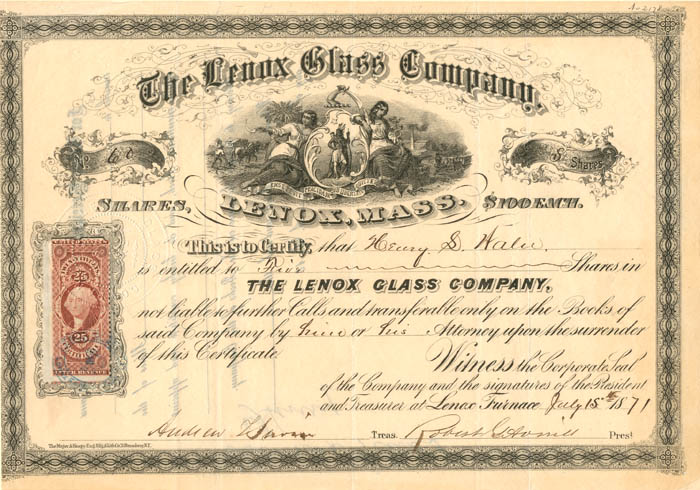 The Lenox Glass Company.
No
5 Shares
SHARES, LENOX, MASS. $100 EACH.
This is to Certify, that Henry S.
is entitled to Five Shares in
THE LENOX GLASS COMPANY,
not liable to further Calls and transferable only on the Books of
said Company by him or his Attorney upon the surrender
of this Certificate.
Witness the Corporate Seal
of the Company and the signatures of the President
and Treasurer at Lenox Furnace July 15th 1871
Andrew Treas. Robert Prest
25 25
25
INTER. REVENUE